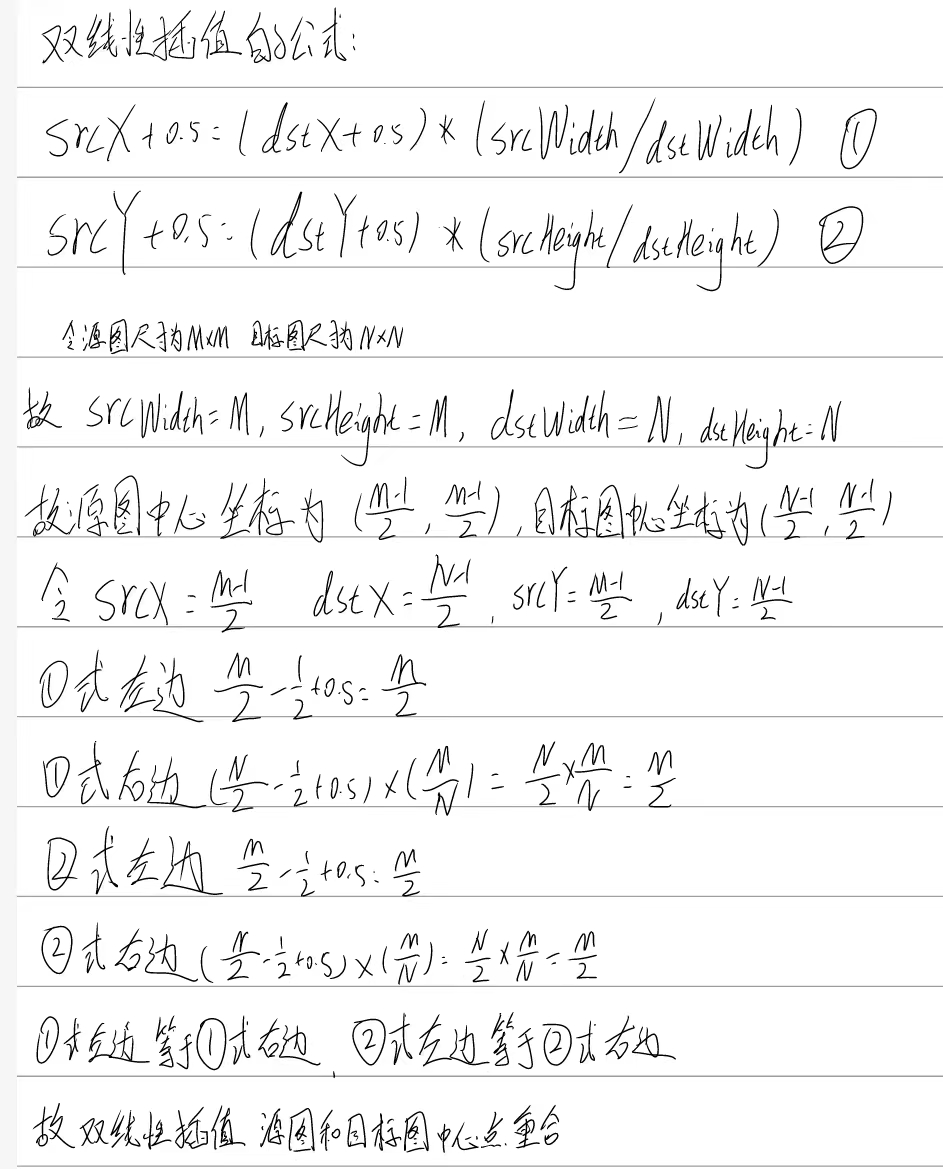 双线性插值的公式:
srcX+0.5=(dstX+0.5)*(srcWidth/dstWidth) ①
srcY+0.5=(dstY+0.5)*(srcHeight/dstHeight) ②
令源图尺寸为M×M 目标图尺寸为N×N
故 srcWidth=M, srcHeight=M, dstWidth=N, dstHeight=N
故源图中心坐标为 (M-1/2, M-1/2), 目标图中心坐标为(N-1/2, N-1/2)
令 srcX=M-1/2 dstX=N-1/2, srcY=M-1/2, dstY=N-1/2
①式左边 M/2-1/2+0.5=M/2
①式右边 (N/2-1/2+0.5)×(M/N)=N/2×M/N=M/2
②式左边 M/2-1/2+0.5=M/2
②式右边 (N/2-1/2+0.5)×(M/N)=N/2×M/N=M/2
①式左边等于①式右边, ②式左边等于②式右边
故双线性插值 源图和目标图中心点重合